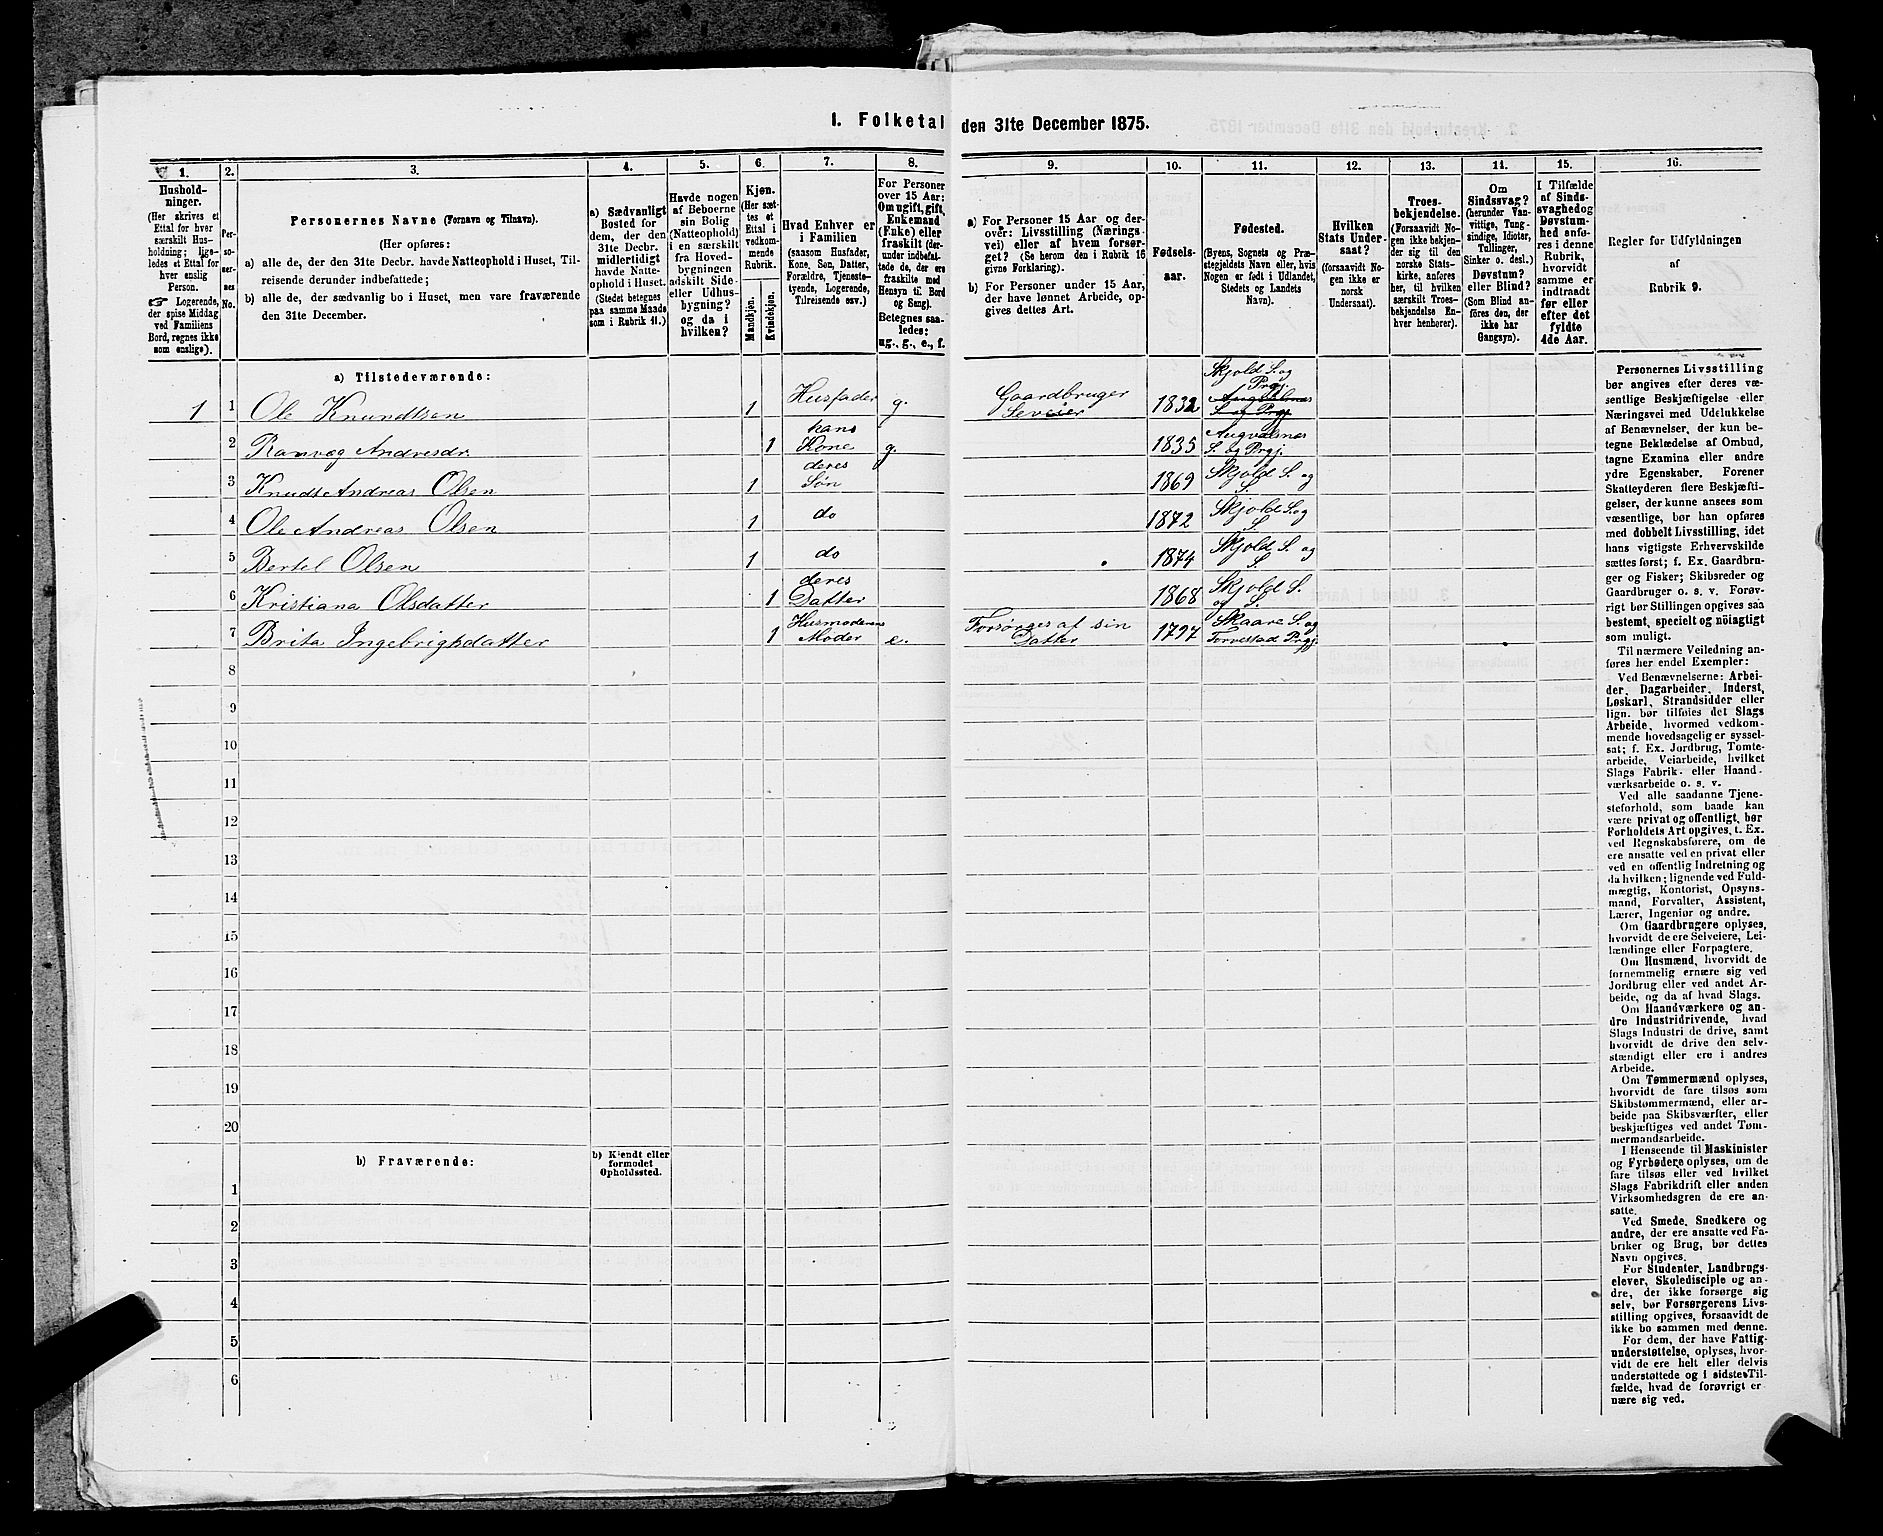 I. Folketal den 31te December 1875.
1.
2.
3.
4.
5.
6.
7.
8.
9.
10.
11.
12.
13.
14.
15.
16.
Hushold-
ninger.
(Her skrives et
Ettal for hver
særskilt Hus-
holdning; lige-
ledes et Ettal for
hver enslig
Person.
☞ Logerende,
der spise Middag
ved Familiens
Bord, regnes ikke
som enslige).
Per-
so-
ner-
nes
No.
Personernes Navne (Fornavn og Tilnavn).
(Her opføres:
a) alle de, der den 31te Decbr. havde Natteophold i Huset, Til-
reisende derunder indbefattede;
b) alle de, der sædvanlig bo i Huset, men vare fraværende
den 31te December.
a) Sædvanligt
Bosted for
dem, der den
31te Decbr.
midlertidigt
havde Natte-
ophold i Huset.
(Stedet betegnes
paa samme Maade
som i Rubrik 11.)
Havde nogen
af Beboerne
sin Bolig
(Natteophold)
i en særskilt
fra Hoved-
bygningen
adskilt Side-
eller Udhus-
bygning?
og da i
hvilken?
Kjøn.
(Her sæt-
tes et
Ettal i
vedkom-
mende
Rubrik.
Mandkjøn.
Kvindekjøn.
Hvad Enhver er
i Familien
(saasom Husfader,
Kone, Søn, Datter,
Forældre, Tjeneste-
tyende, Logerende,
Tilreisende osv.)
For Personer
over 15 Aar:
Om ugift, gift,
Enkemand
(Enke) eller
fraskilt (der-
under indbefat-
tede de, der ere
fraskilte med
Hensyn til Bord
og Seng).
Betegnes saa-
ledes:
ug., g., e., f.
a) For Personer 15 Aar og der-
over: Livsstilling (Nærings-
vei) eller af hvem forsør-
get? (Se herom den i Rubrik 16
givne Forklaring).
b) For Personer under 15 Aar,
der have lønnet Arbeide, op-
gives dettes Art.
Fødsels-
aar.
Fødested.
(Byens, Sognets og Præ-
stegjeldets Navn eller, hvis
Nogen er født i Udlandet,
Stedets og Landets
Navn).
Hvilken
Stats Under-
saat?
(forsaavidt No-
gen ikke er
norsk
Undersaat).
Troes-
bekjendelse.
(Forsaavidt No-
gen ikke bekjen-
der sig til den
norske Stats-
kirke, anføres
her, til hvilken
særskilt Troes-
bekjendelse En-
hver henhører).
Om
Sindssvag?
(herunder Van-
vittige, Tung-
sindige, Idioter,
Tullinger,
Sinker o. desl.)
Døvstum?
eller Blind?
(Som Blind an-
føres den, der
ikke har
Gangsyn).
I Tilfælde
af Sinds-
svaghed og
Døvstum-
hed anfø-
res i denne
Rubrik,
hvorvidt
samme er
indtraadt
før eller
efter det
fyldte
4de Aar.
Regler for Udfyldningen
af
Rubrik 9.
a) Tilstedeværende:
1 1 Ole Knundtsen 1 Husfader g. Gaardbruger Seveier 1832 Skjold S. og Prgj. Augvalsnes S. og Prgj.
2 Ranvæg Andresdr. 1 hans Kone g. 1835 Augvalsnæs S. og Prgj.
3 Knudt Andreas Olsen 1 deres Søn 1869 Skjold S. og S.
4 Ole Andreas Olsen 1 do 1872 Skjold S. og S.
5 Bertel Olsen 1 do 1874 Skjold S. og S.
6 Kristiana Olsdatter 1 deres Datter 1868 Skjold S. og S.
7 Brita Ingebrigtsdatter 1 Husmoderens Moder e. Forsørges af sin Datter 1797 Skaare S. og Torvestad Prgj.
8
9
10
11
12
13
14
15
16
17
18
19
20
b) Fraværende:
b) Kjendt eller
formodet
Opholdssted.
1
2
3
4
5
6
Personernes Livsstilling
bør angives efter deres væ-
sentlige Beskjæftigelse eller
Næringsvei med Udelukkelse
af Benævnelser, der kun be-
tegne Beklædelse af Ombud,
tagne Examina eller andre
ydre Egenskaber. Forener
Skatteyderen flere Beskjæfti-
gelser, der kunne ansees som
væsentlige, bør han opføres
med dobbelt Livsstilling, idet
hans vigtigste Erhvervskilde
sættes først; f. Ex. Gaardbru-
ger og Fisker; Skibsreder og
Gaardbruger o. s. v. Forøv-
rigt bør Stillingen opgives saa
bestemt, specielt og nöiagtigt
som muligt.
Til nærmere Veiledning an-
føres her endel Exempler:
Ved Benævnelserne: Arbei-
der, Dagarbeider, Inderst,
Løskarl, Strandsidder eller
lign. bør tilføies det Slags
Arbeide, hvormed vedkom-
mende hovedsagelig er syssel-
sat; f. Ex. Jordbrug, Tomte-
arbeide, Veiarbeide, hvilket
Slags Fabrik- eller Haand-
værksarbeide o. s. v.
Ved alle saadanne Tjene-
steforhold, som baade kan
være privat og offentligt, bør
Forholdets Art opgives, t. Ex.
ved Regnskabsførere, om de
ere ansatte ved en privat eller
ved en offentlig Indretning og
da hvilken; lignende ved Fuld-
mægtig, Kontorist, Opsyns-
mand, Forvalter, Assistent,
Lærer, Ingeniør og andre.
Om Gaardbrugere oplyses,
hvorvidt de ere Selveiere, Lei-
lændinge eller Forpagtere.
Om Husmænd, hvorvidt de
fornemmelig ernære sig ved
Jordbrug eller ved andet Ar-
beide, og da af hvad Slags.
Om Haandværkere og an-
dre Industridrivende, hvad
Slags Industri de drive, samt
hvorvidt de drive den selv-
stændigt eller ere i andres
Arbeide.
Om Tømmermænd oplyses,
hvorvidt de fare tilsøs som
Skibstømmermænd, eller ar-
beide paa Skibsværfter, eller
beskjæftiges ved andet Tøm-
mermandsarbeide.
I Henseende til Maskinister
og Fyrbødere oplyses, om de
fare tilsøs eller ved hvilket
Slags Fabrikdrift eller anden
Virksomhedsgren de ere an-
satte.
Ved Smede, Snedkere og
andre, der ere ansatte ved Fa-
briker og Brug, bør dettes
Navn opgives.
For Studenter, Landbrugs-
elever, Skoledisciple og an-
dre, der ikke forsørge sig
selv, bør Forsørgerens Livs-
stilling opgives, forsaavidt de
ikke bo sammen med denne.
For dem, der have Fattig-
understøttelse, oplyses, hvor-
vidt de ere helt eller delvis
understøttede og i sidste Til-
fælde, hvad de forøvrigt er-
nære sig ved.